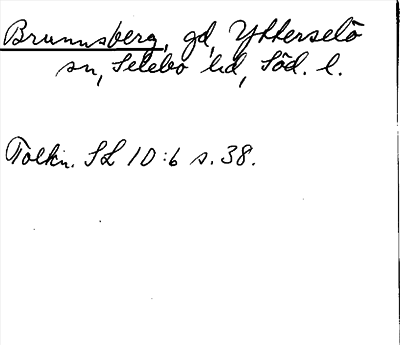 Brunnsberg, gd, Ytterselö
sn, Selebo hd, Söd. l.
Tolkn. SL 10:6 s. 38.